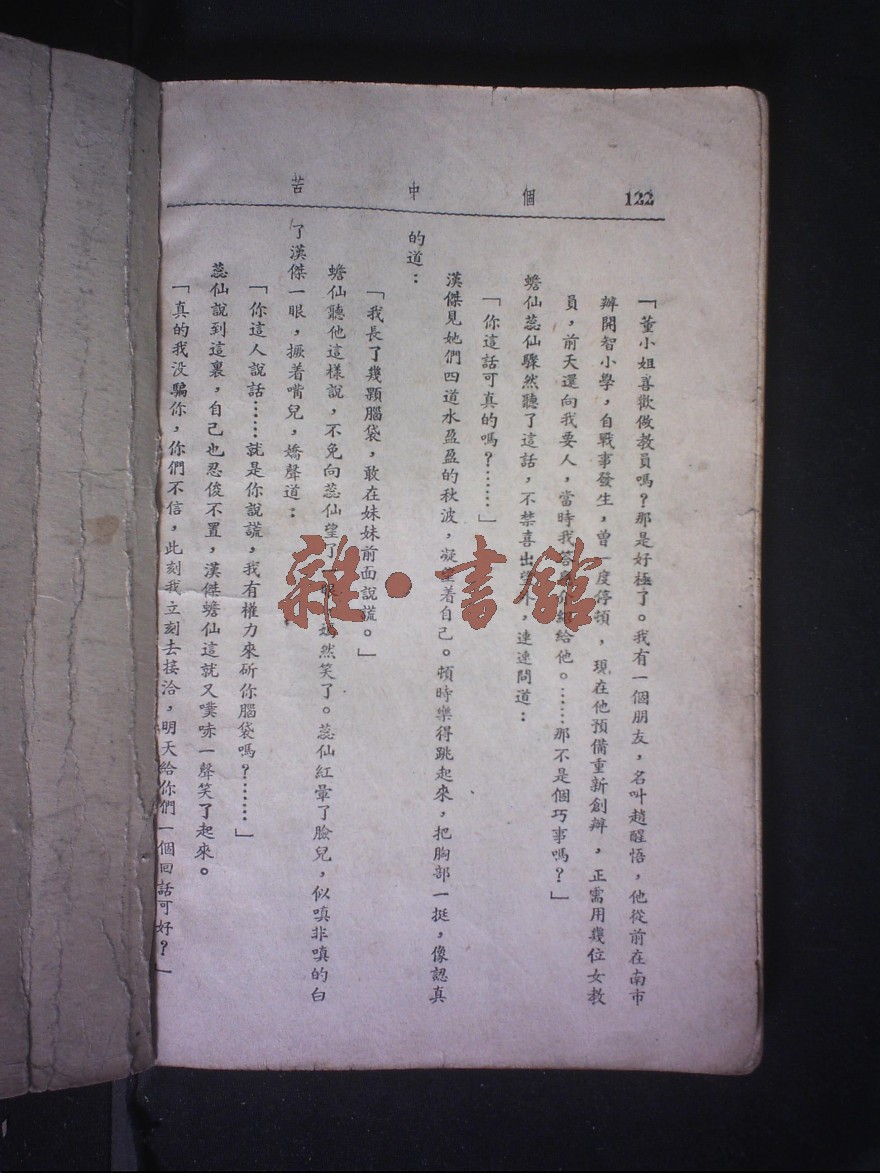 122
個中苦
「董小姐喜歡做教員嗎？那是好極了。我有一個朋友，名叫趙醒悟，他從前在南市
辦開智小學，自戰事發生，曾一度停頓，現在他預備重新創辦，正需用幾位女教
員，前天還向我要人，當時我答給他。……那不是個巧事嗎？」
蟾仙蕊仙驟然聽了這話，不禁喜出望外，連連問道：
「你這話可真的嗎？……」
漢傑見她們四道水盈盈的秋波，凝望着自己。頓時樂得跳起來，把胸部一挺，像認真
的道：
「我長了幾顆腦袋，敢在妹妹前面說謊。」
蟾仙聽他這樣說，不免向蕊仙望了一眼，嫣然笑了。蕊仙紅暈了臉兒，似嗔非嗔的白
了漢傑一眼，撅着嘴兒，嬌聲道：
「你這人說話……就是你說謊，我有權力來斫你腦袋嗎？……」
蕊仙說到這裏，自己也忍俊不置，漢傑蟾仙這就又噗哧一聲笑了起來。
「真的我沒騙你，你們不信，此刻我立刻去接洽，明天給你們一個回話可好？」
雜·書館